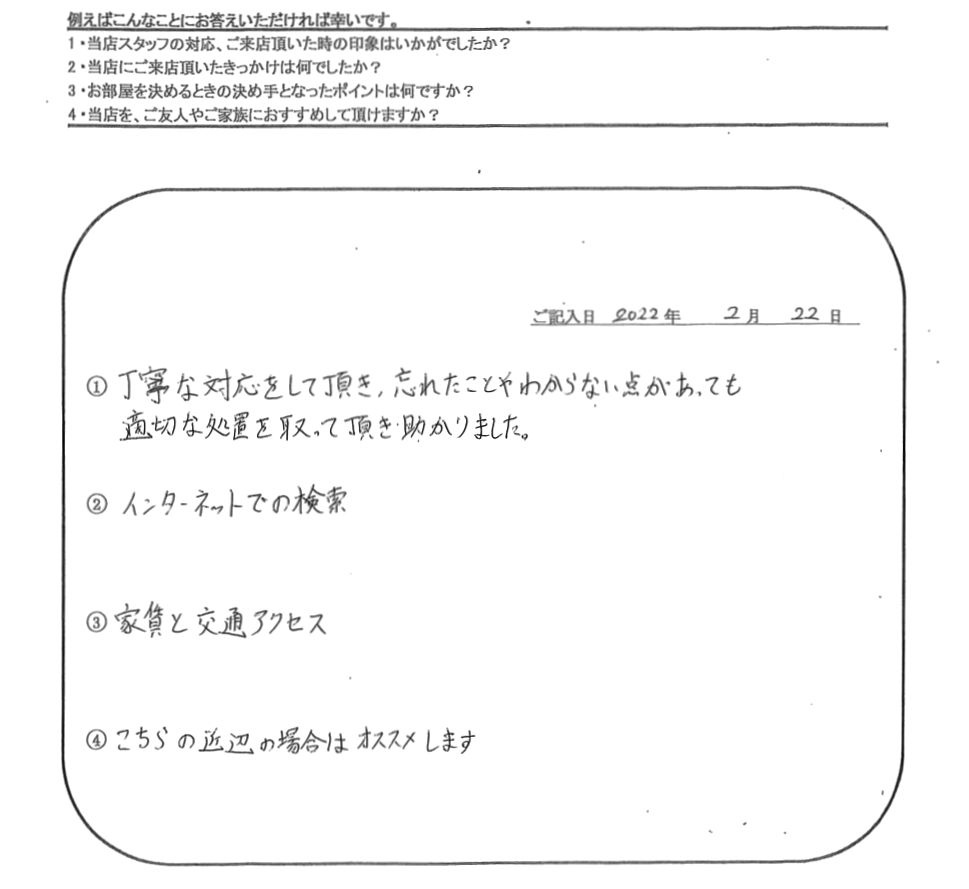 例えばこんなことにお答えいただければ幸いです。
1・当店スタッフの対応、ご来店頂いた時の印象はいかがでしたか?
2・当店にご来店頂いたきっかけは何でしたか?
3・お部屋を決めるときの決め手となったポイントは何ですか?
4・当店を、ご友人やご家族におすすめして頂けますか?
ご記入日 2022年 2月 22日
① 丁寧な対応をして頂き,忘れたことやわからない点があっても
適切な処置を取って頂き助かりました。
② インターネットでの検索
③ 家賃と交通アクセス
④ こちらの近辺の場合はオススメします